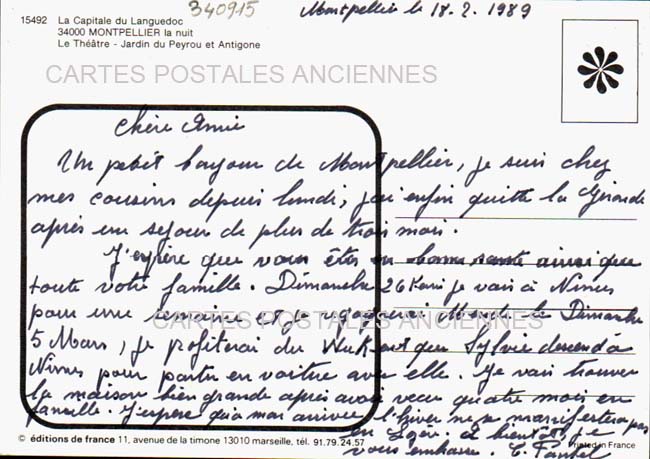 340915
Montpellier le 18.2.1989
15492 La Capitale du Languedoc
34000 MONTPELLIER la nuit
Le Théâtre - Jardin du Peyrou et Antigone
CARTES POSTALES ANCIENNES
Chère Amie
Un petit bonjour de Montpellier, je suis chez
mes cousins depuis lundi, j'ai enfin quitté la Gironde
après un séjour de plus de trois mois.
J'espère que vous êtes en bonne santé ainsi que
toute votre famille. Dimanche 26 je vais à Nimes
pour une semaine et je regagnerai Mende le Dimanche
CARTES POSTALES ANCIENNES
5 Mars, je profiterai du que Sylvie descend à
Nimes pour partir en voiture avec elle. Je vais trouver
la maison bien grande après avoir vécu quatre mois en
famille. J'espère qu'à mon arrivée l'hiver ne se manifestera pas
en Lozère. à bientôt, je
vous embrasse.
© éditions de france 11, avenue de la timone 13010 marseille, tél. 91.79.24.57
Printed in France